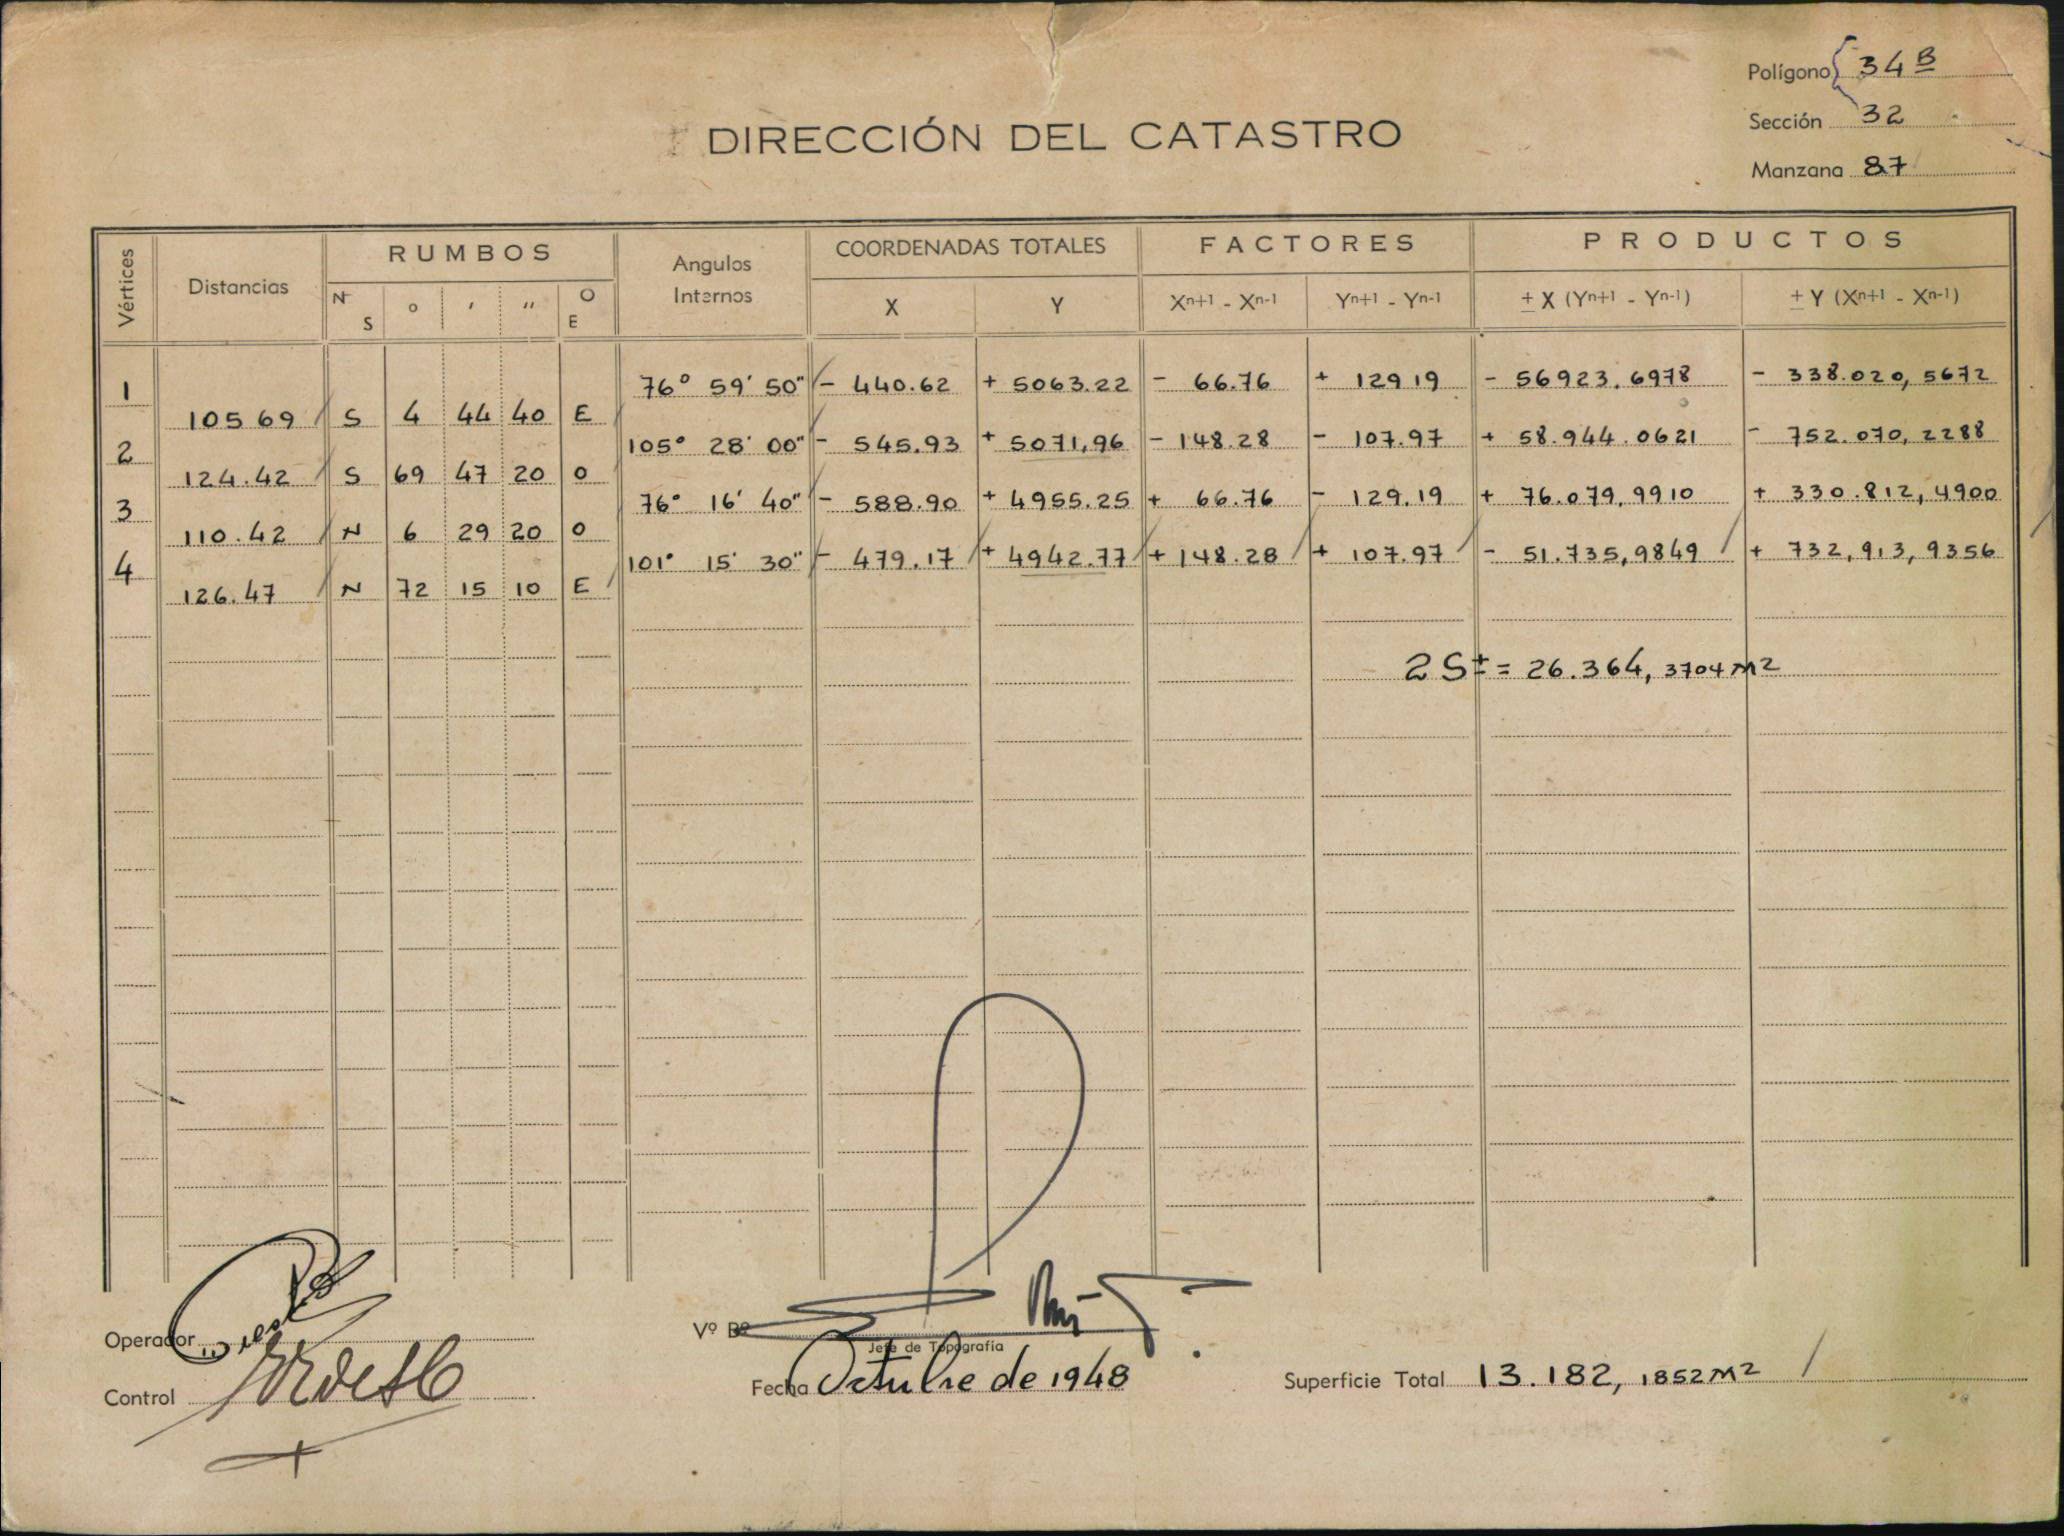 Polígono 34 B
Sección 32
Manzana 87
DIRECCIÓN DEL CATASTRO
Vértices
Distancias
RUMBOS
N S
o
'
"
O E
Angulos Internos
COORDENADAS TOTALES
X
Y
FACTORES
Xn+1 - Xn-1
Yn+1 - Yn-1
PRODUCTOS
± X (Yn+1 - Yn-1)
± Y (Xn+1 - Xn-1)
1 76° 59' 50" - 440.62 + 5063.22 - 66.76 + 129 19 - 56923.6978 - 338.020,5672
105 69 S 4 44 40 E
2 105° 28' 00" - 545.93 + 5071,96 - 148.28 - 107.97 + 58.944.0621 - 752.070,2288
124.42 S 69 47 20 O
3 76° 16' 40" - 588.90 + 4955.25 + 66.76 - 129.19 + 76.079,9910 + 330.812,4900
110.42 N 6 29 20 O
4 101° 15' 30" - 479.17 + 4942.77 + 148.28 + 107.97 - 51.735,9849 + 732,913,9356
126.47 N 72 15 10 E
2 S ± = 26.364, 3704 M2
Operador
Vº Bº
Jefe de Topografía
Control
Fecha Octubre de 1948
Superficie Total 13.182, 1852 M2